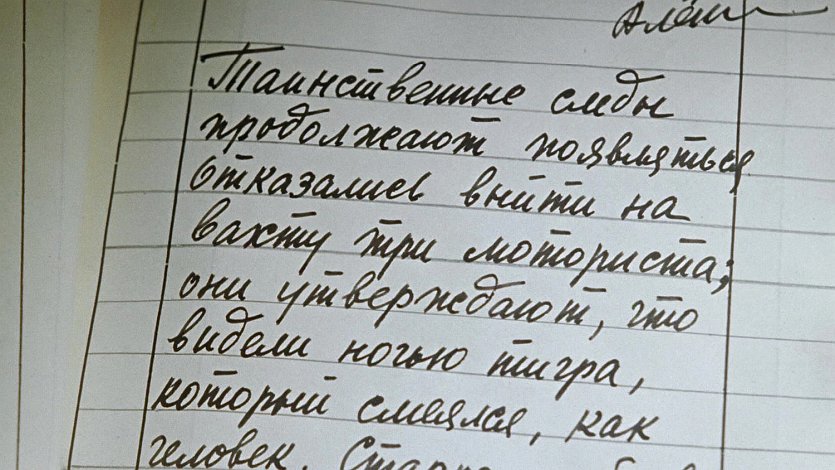 Таинственные следы
продолжают появляться
Отказались выйти на
вахту три моториста;
они утверждают, что
видели ночью тигра,
который смеялся, как
человек.